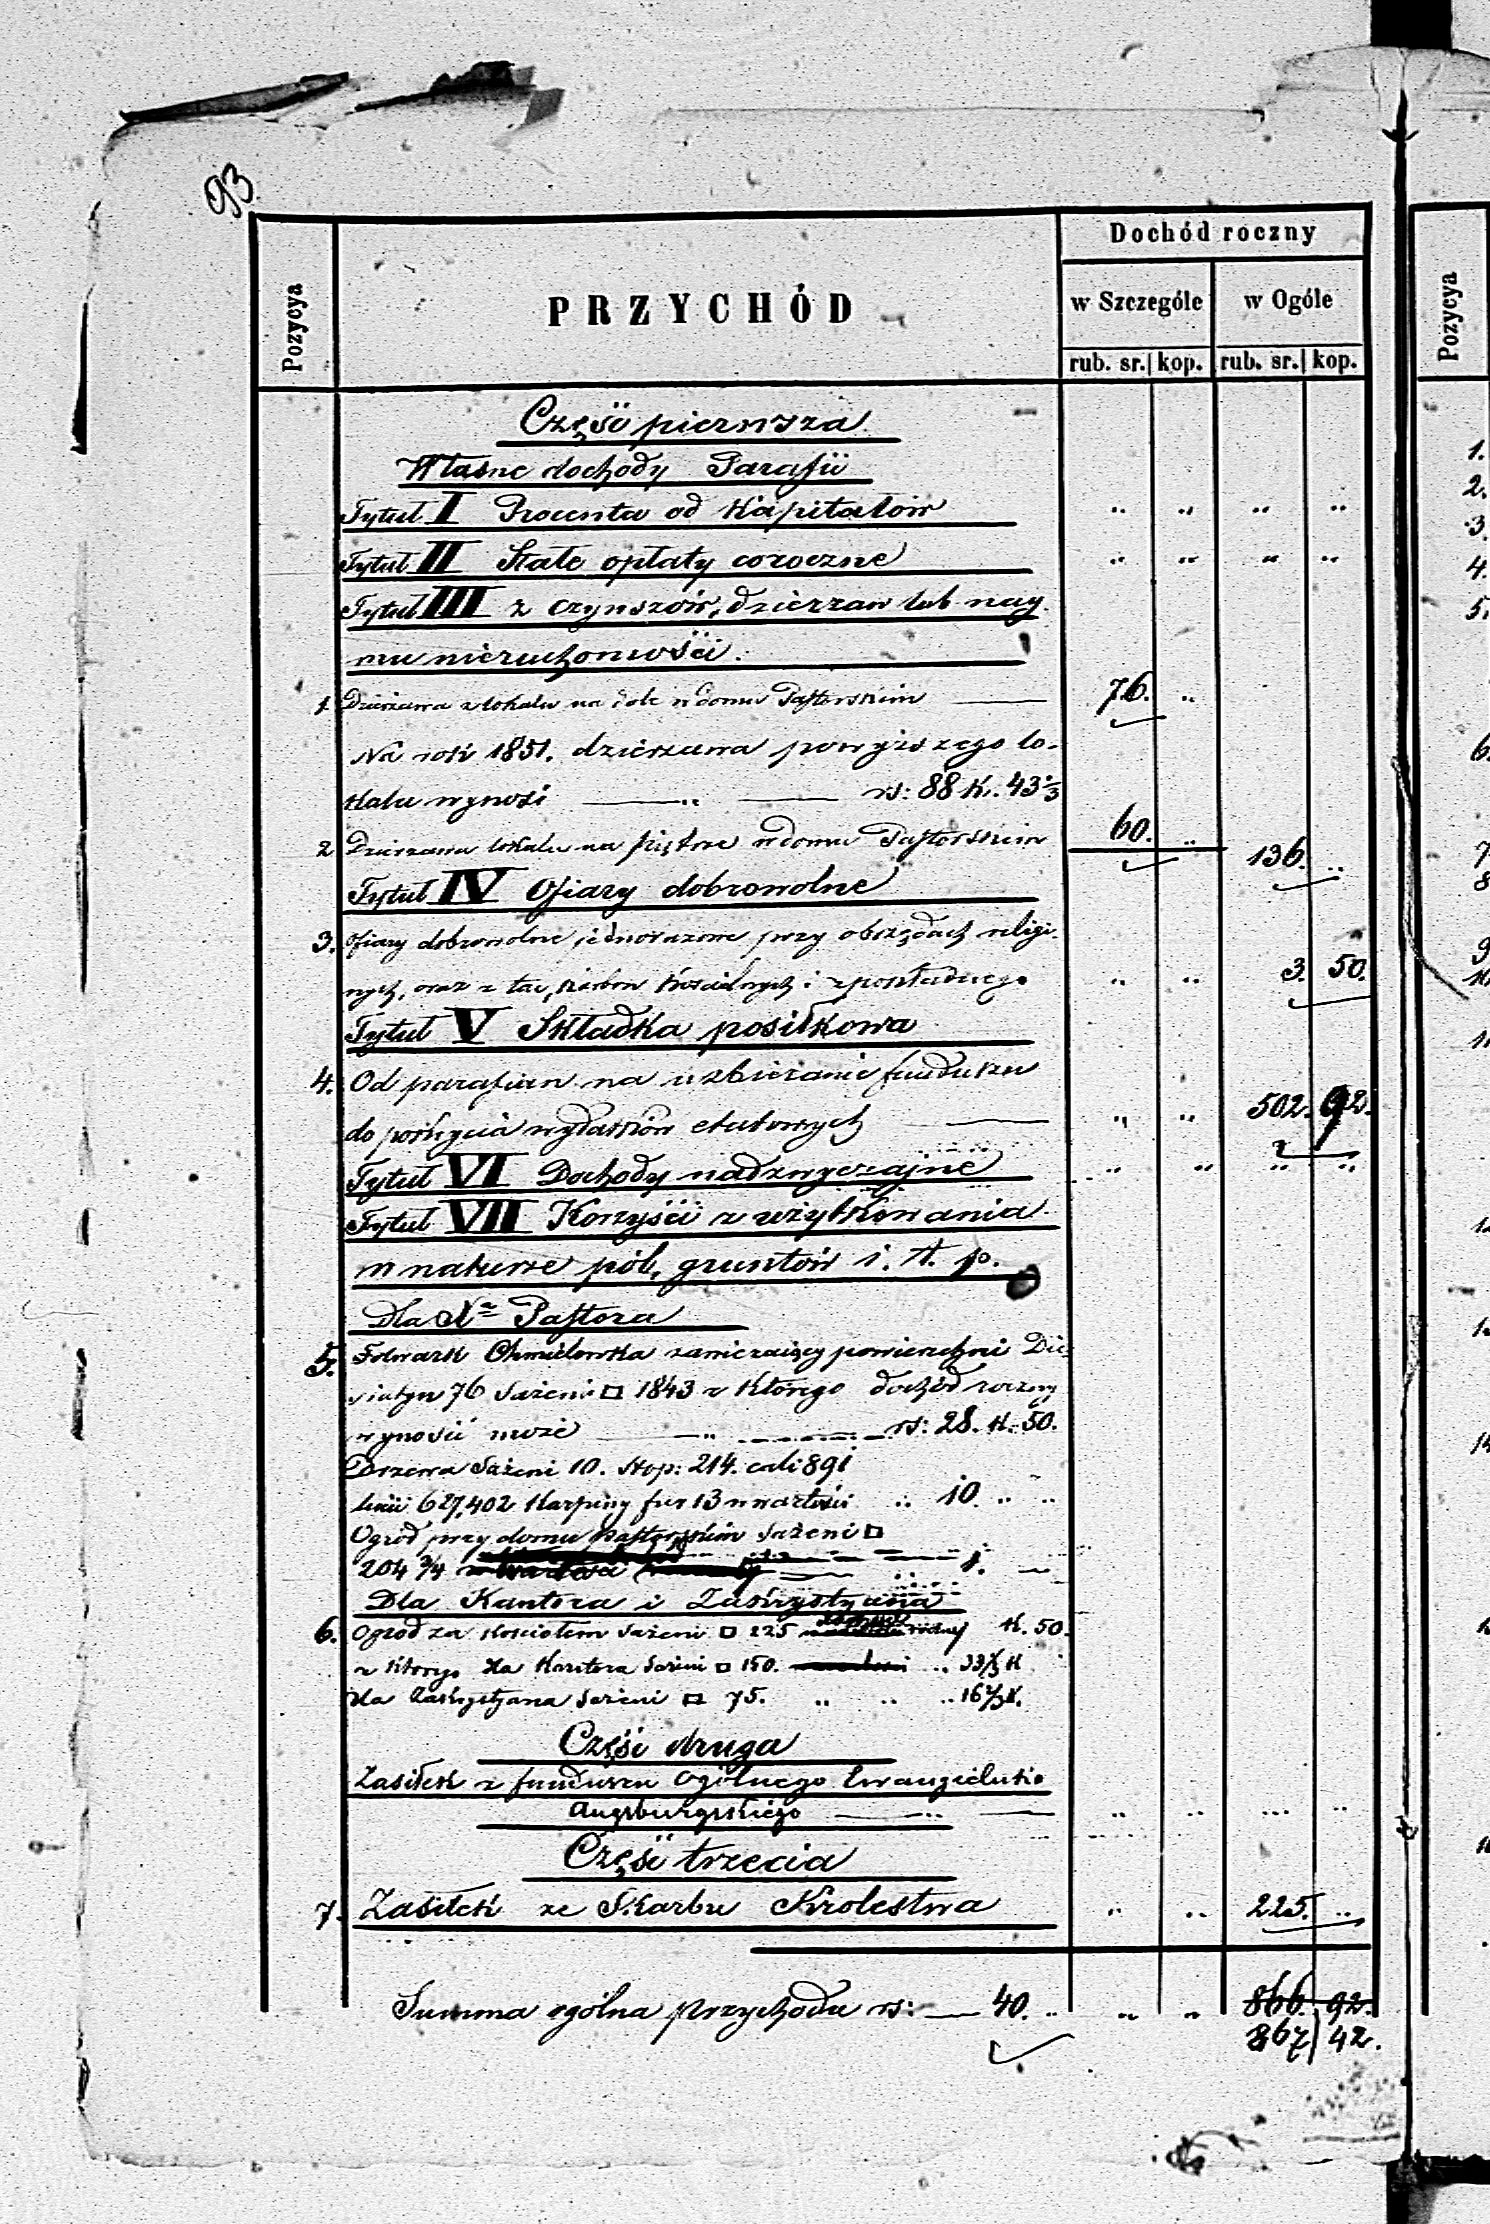 93
Pozycya
PRZYCHÓD
Dochód roczny
w Szczególe w Ogóle
rub. sr. kop. rub. sr. kop.
Część pierwsza
Własne dochody Parafii
Tytuł I Procenta od Kapitałów " " " "
Tytuł II Stałe opłaty coroczne " " " "
Tytuł III z czynszów, dzierzaw lub nay
mu nieruchomości.
1. Dzierżawa z lokalu na dole w domu Pastorskim 76. "
Na rok 1851. dzierzawa powyższego lo-
kalu wynosi — " — rs: 88 K. 43 1/3
2 Dzierzawa lokalu na piętrze w domu Pastorskim 60. " 136. "
Tytuł IV Ofiary dobrowolne
3. Ofiary dobrowolne jednorazowe przy obrzędach religij
nych, oraz z tac, skarbon Kościelnych i z pokładnego " " 3. 50.
Tytuł V Składka posiłkowa
4. Od parafian na uzbieranie funduszu
do pokrycia wydatków etatowych — " " 502. 92.
Tytuł VI Dochody nadzwyczajne " " " "
Tytuł VII Korzyści z użytkowania
w naturze pól, gruntów i. t. p.
Dla Xa Pastora
5. Folwark Chmielowka zawierający powierzchni Die-
siatyn 76 Sażeni □ 1843 z którego dochód roczny
wynosić może — " — rs: 28. K. 50.
Drzewa Sażeni 10. Stop: 214. cali 891
linii 627,402 Karpiny fur 13 w wartości " 10. " "
Ogród przy domu Pastorskim Sażeni □
204 3/4 w wartości " 1. —
Dla Kantora i Zakrystyana
6. Ogród za Kościołem Sażeni □ 225 K. 50.
z którego dla Kantora Sażeni □ 150. " 33 1/3 K
dla Zakrystyana Sażeni □ 75. " " " 16 2/3 K.
Część druga
Zasiłek z funduszu Ogólnego Ewangelicko
Augsburgskiego — " — " " " "
Część trzecia
7. Zasiłek ze Skarbu Krolestwa " " 225. "
Summa ogólna przychodu rs: — 40. " " " 866. 92.
867 42.
Pozycya
1.
2.
3.
4.
5.